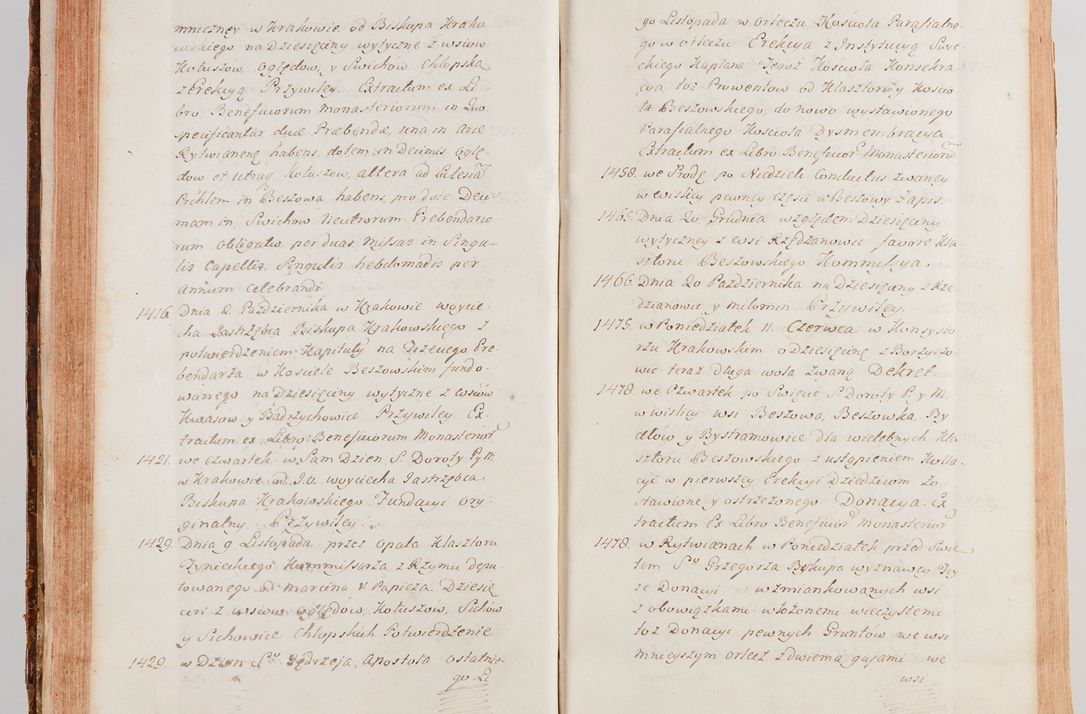 mniczney w Krakowie od Biskupa Krako
wskiego na Dziesięciny wytyczne z wsiow
Kotuszow, Oględow, y Swichow Chlopska
z Erekcyą Przywiley. Extractum ex Li
bro Beneficiorum Monasteriorum in Quo
specificantur duæ Præbendæ, una in Arce
Rytwianenę habens dotem in Decimis Oglę
dow et utraq Kotuszow, altera ad Eclesiã
Pichlem in Beszowa habens pro dote Deci
mam in Swichow Neutrorum Prebendario
rum obligatio per duas Missas in Singu
lis Capellis, Singulis hebdomadis per
annum celebrandi
1416 Dnia 2. Pazdziernika w Krakowie Woycie
cha Jastrzębca Biskupa Krakowskiego z
potwierdzeniem Kapituły na Trzeciego Pre
bendarza w Kosciele Beszowskim fundo
wanego na Dziesięciny wytyczne z wsiow
Kwasow y Badrzychowice Przywiley. Ex
tractum ex Libro Beneficiorum Monasterior̃
1421. we Czwartek w Sam Dzien S. Doroty P. y M.
w Krakowie od J.O. Woyciecha Jastrzębca
Biskupa Krakowskiego Fundacyi ory
ginalny Przywiley.
1429. Dnia 9 Listopada przez Opata Klasztoru
Tynieckiego Kommissarza z Rzymu depu
towanego od Marcina V. Papieża. Dziesię
cin z wsiow Oględow, Kotuszow, Sichow
y Sichowice Chłopskich Potwierdzenie
1429. w Dzien Sgo Jędrzeja Apostoła ostatnie-
go Li
go Listopada w Orłeczu Kosciola Parafialne-
go w Orłeczu Erekcya z Instytucyą Swie
ckiego Kapłana Tegoż Kosciola Konsekra
cya toż Prowentow od Klasztorney Koscio
ła Beszowskiego do nowo wystawionego
Parafialnego Kosciola Dysmembracya
Extractum ex Libro Beneficior̃ Monasteriorũ
1458. we Srodę po Niedziele Conductus zwaney
w Wislicy pewney Częsci w Beszowy Zapis.
1462. Dnia 20 Grudnia względem Dziesięciny
wytyczney z wsi Rzędzanowic favore Kla
sztoru Beszowskiego Kommissya.
1466. Dnia 20 Pazdziernika na Dziesięciny z Rzę
dzianowic y Milomin Przywiley.
1475. w Poniedziałek 11. Czerwca w Konsysto
rzu Krakowskim o Dziesięcinę z Borzyszo-
wic teraz Długa wola Zwaną Dekret
1478. we Czwartek po Swięcie S. Doroty P. y M.
w Wislicy wsi Beszowa, Beszowka, By-
dłow y Bystramowice dla wielebnych Kla
sztoru Beszowskiego z ustąpieniem Kolla-
cyi w pierwszey Erekcyi Dziedzicom Zo
stawione y ostrzeżonego Donacya. Ex
tractum Ex Libro Beneficior̃ Monasterior̃
1478. w Rytwianach w Poniedziałek przed Swię
tem Sgo Grzegorza Biskupa wyznawcy Tey
że Donacyi wzmiankowanych wsi
z obowiązkami włożonemi wieczystemi
toż Donacyi pewnych Gruntow we wsi
mnieyszym Orłecz z dwiema gajami we
wsi